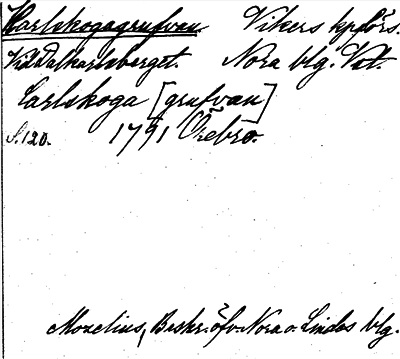 Karlskogagrufvan. Vikers kpförs.
Vid Dalkarlsberget. Nora blg. Vstm.
Carlskoga [grufvan]
S. 120. 1791 Örebro.
Mozelius, Beskr. öfv. Nora o. Lindes blg.